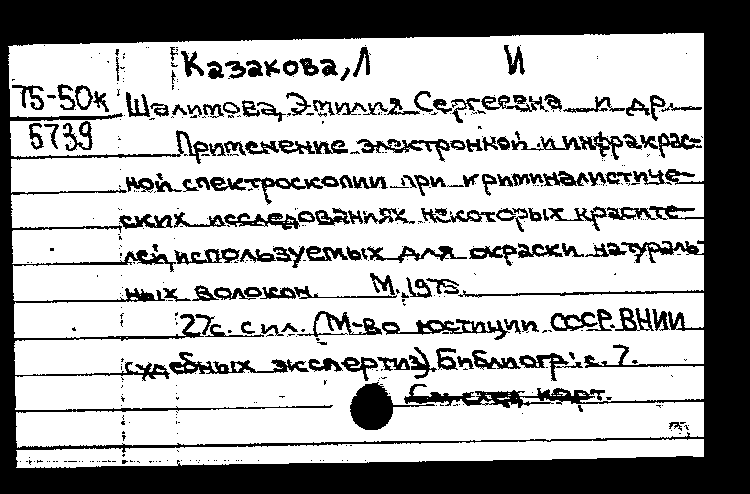 Казакова, Л И
75-50к
5739
Шалимова, Эмилия Сергеевна и др.
Применение электронной и инфракрас-
ной спектроскопии при криминалистиче-
ских исследованиях некоторых красите-
лей, используемых для окраски натураль-
ных волокон. М., 1975.
27с. с ил. (М-во юстиции СССР. ВНИИ
судебных экспертиз). Библиогр.: с. 7.
См. след. карт.